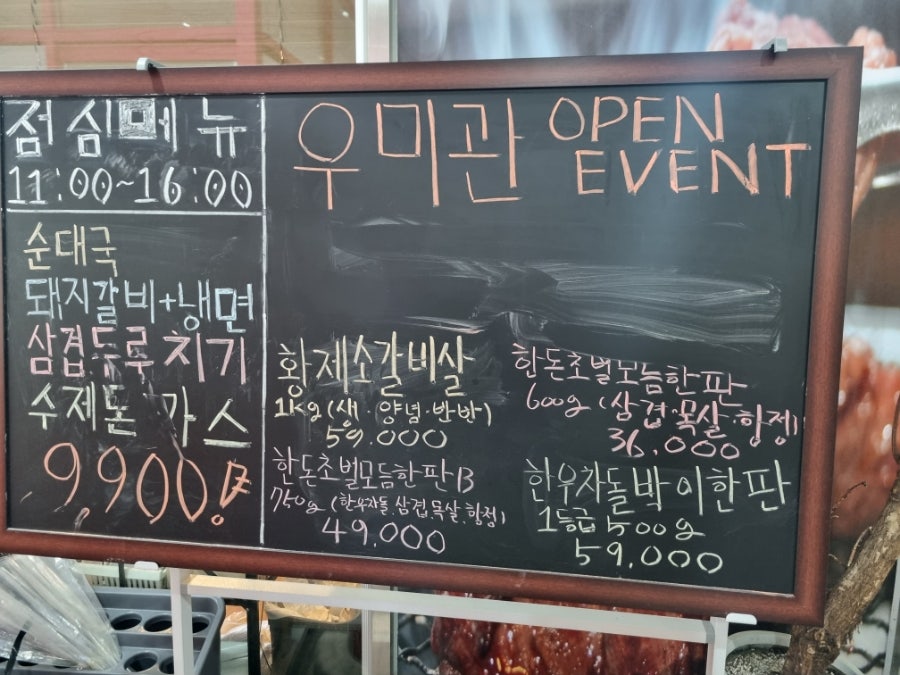 점심메뉴
11:00~16:00
순대국
돼지갈비+냉면
삼겹두루치기
수제돈까스
9,900!
우미관 OPEN
EVENT
황제소갈비살
1kg(생·양념·반반)
59.000
한돈초벌모듬한판B
750g (한우차돌.삼겹.목살.항정)
49.000
한돈초벌모듬한판
600g (삼겹·목살·항정)
36.000
한우차돌박이한판
1등급 500g
59.000